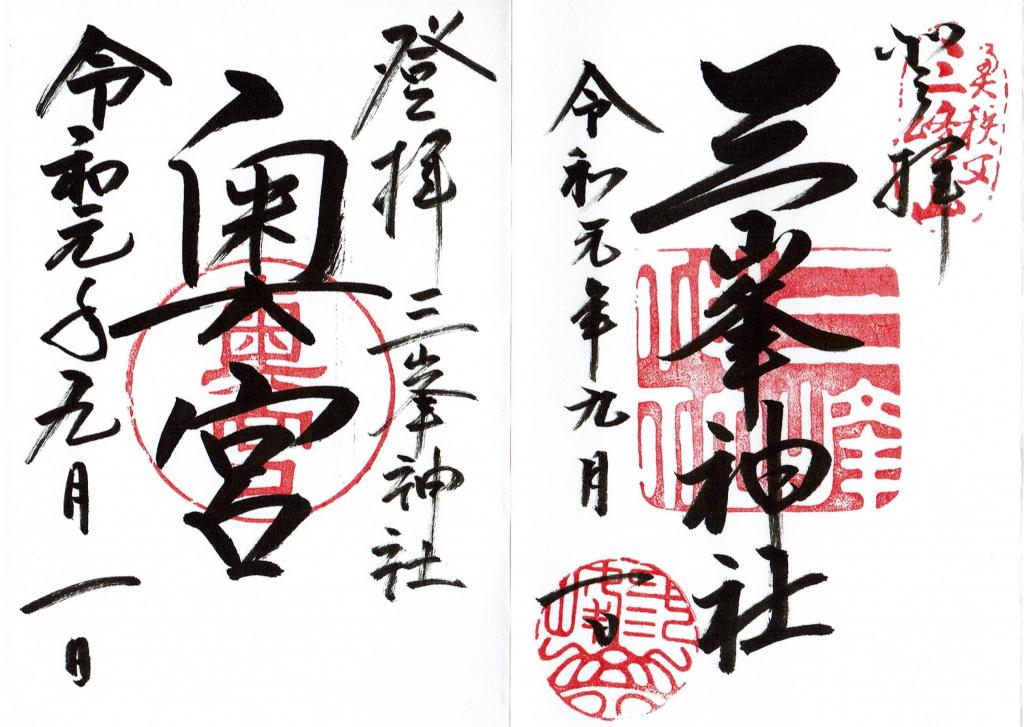 登拝
奥秩父
三峰山
三峯神社
三峯神社
令和元年九月一日
登拝 三峯神社
奥宮
奥宮
令和元年九月一日